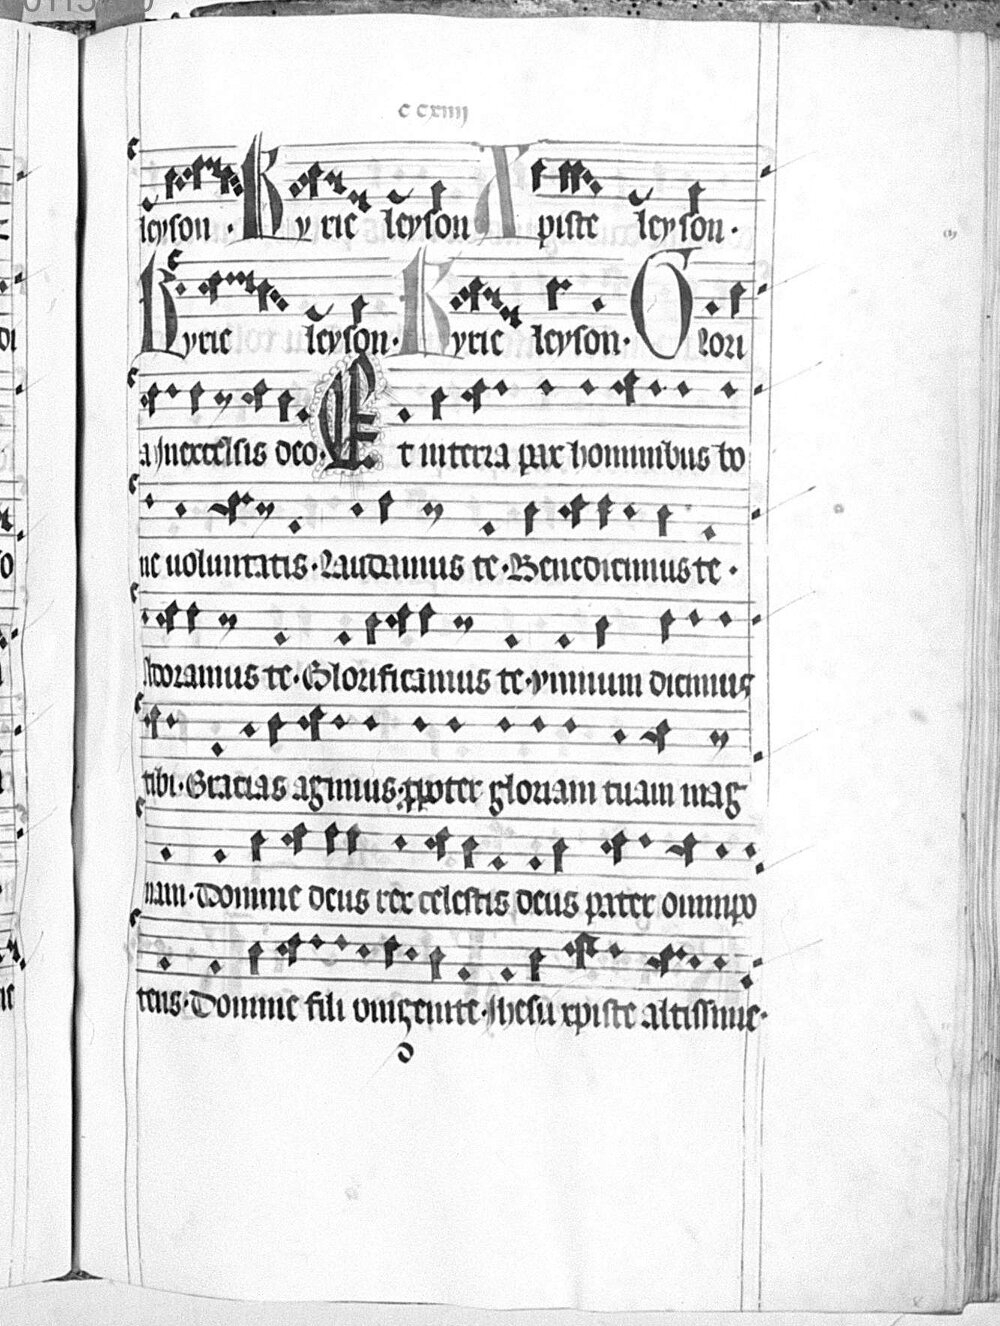 ccxiiii
leyson · Kyrie leyson Xpiste leyson ·
Kyrie leyson · Kyrie leyson · Glori
a inexcelsis deo · Et interra pax hominibus bo
ne uoluntatis · Laudamus te · Benedicimus te ·
Adoramus te · Glorificamus te · ymnum dicimus
tibi · Gracias agimus · ppter gloriam tuam mag
nam · Domine deus rex celestis deus pater omnipo
tens · Domine fili unigenite · Ihesu xpiste altissime ·